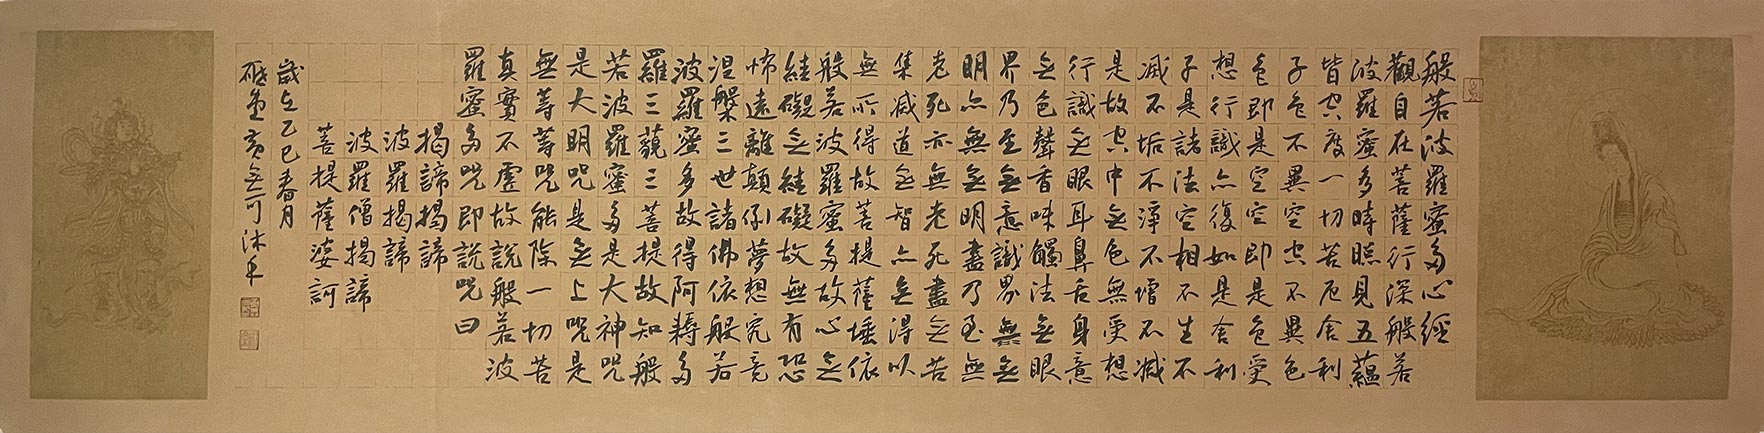 般若波羅蜜多心經
觀自在菩薩行深般若
波羅蜜多時照見五蘊
皆空度一切苦厄舍利
子色不異空空不異色
色即是空空即是色受
想行識亦復如是舍利
子是諸法空相不生不
滅不垢不淨不增不減
是故空中無色無受想
行識無眼耳鼻舌身意
無色聲香味觸法無眼
界乃至無意識界無無
明亦無無明盡乃至無
老死亦無老死盡無苦
集滅道無智亦無得以
無所得故菩提薩埵依
般若波羅蜜多故心無
絓礙無絓礙故無有恐
怖遠離顛倒夢想究竟
涅槃三世諸佛依般若
波羅蜜多故得阿耨多
羅三藐三菩提故知般
若波羅蜜多是大神咒
是大明咒是無上咒是
無等等咒能除一切苦
真實不虛故說般若波
羅蜜多咒即說咒曰
揭諦揭諦
波羅揭諦
波羅僧揭諦
菩提薩婆訶
歲在乙巳春月
無可沐手